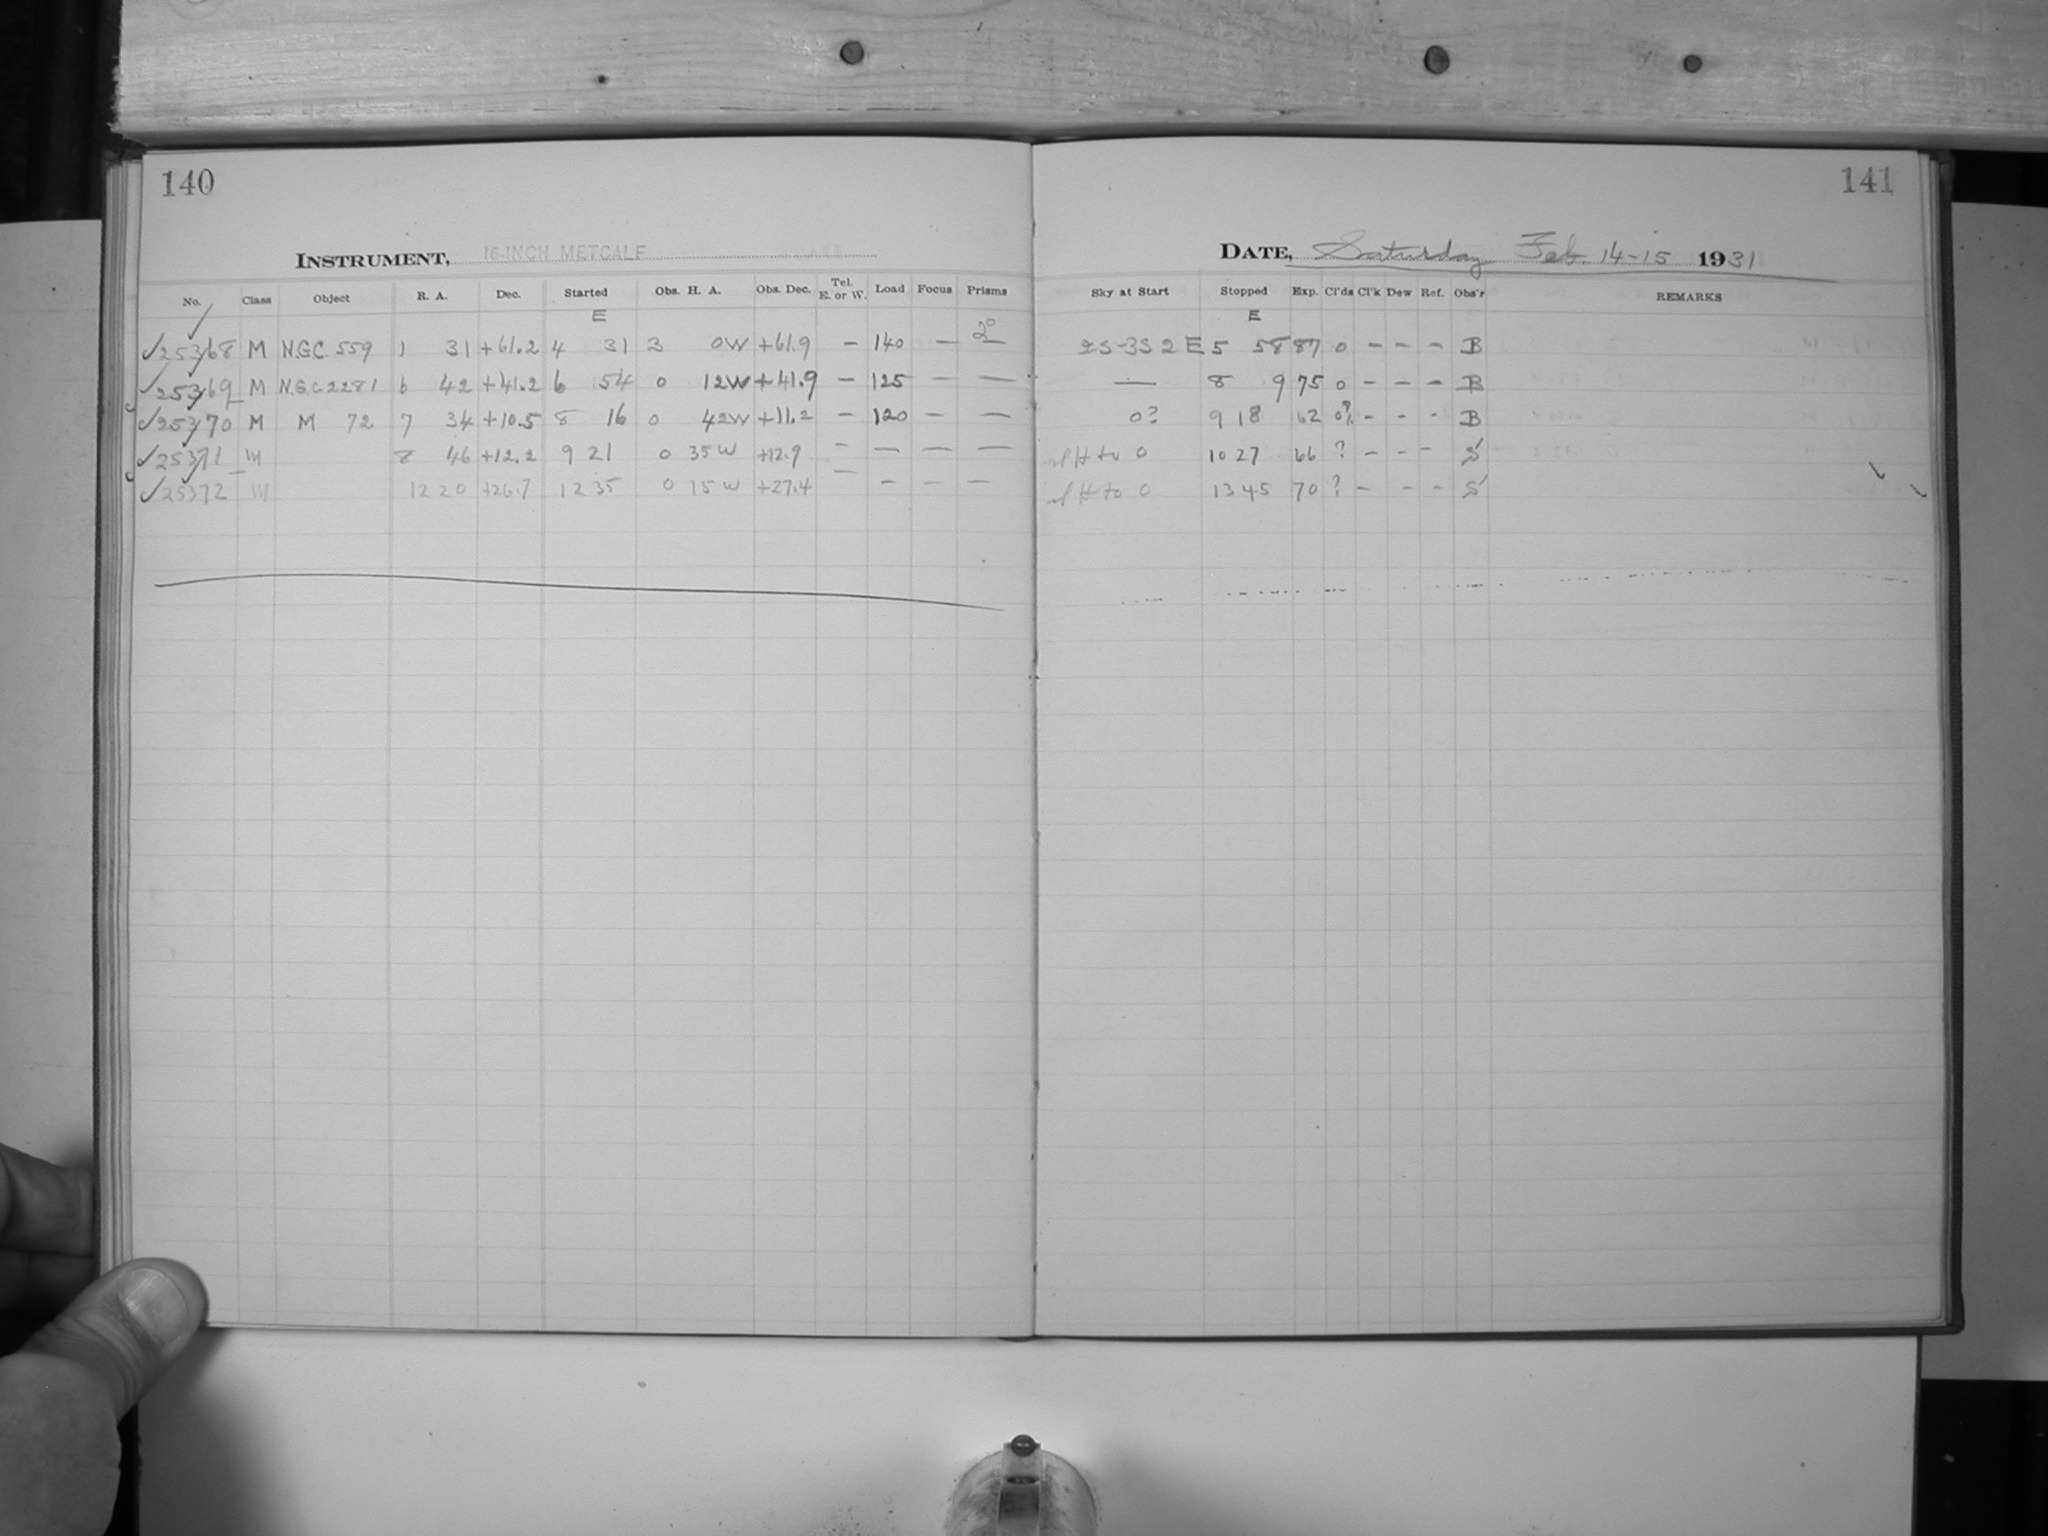 140
INSTRUMENT, 16-INCH METCALF
No. Class Object R. A. Dec. Started Obs. H. A. Obs. Dec. Tel. E. or W. Load Focus Prisms
E
25368 M N.G.C. 559 1 31 +61.2 4 31 3 0W +61.9 — 140 — 2°
25369 M N.G.C 2281 6 42 +41.2 6 54 0 12W +41.9 — 125 — —
25370 M M 72 7 34 +10.5 8 16 0 42W +11.2 — 120 — —
25371 M 8 46 +12.2 9 21 0 35W +12.9 — — — —
25372 M 12 20 +26.7 12 35 0 15W +27.4 — — — —
141
DATE, Saturday Feb. 14-15 1931
Sky at Start Stopped Exp. Cl'ds Cl'k Dew Ref. Obs'r REMARKS
E
2S-3S 2 E 5 58 87 0 — — — B
— 8 9 75 0 — — — B
0? 9 18 62 0? — — — B
H to 0 10 27 66 ? — — — S
H to 0 13 45 70 ? — — — S